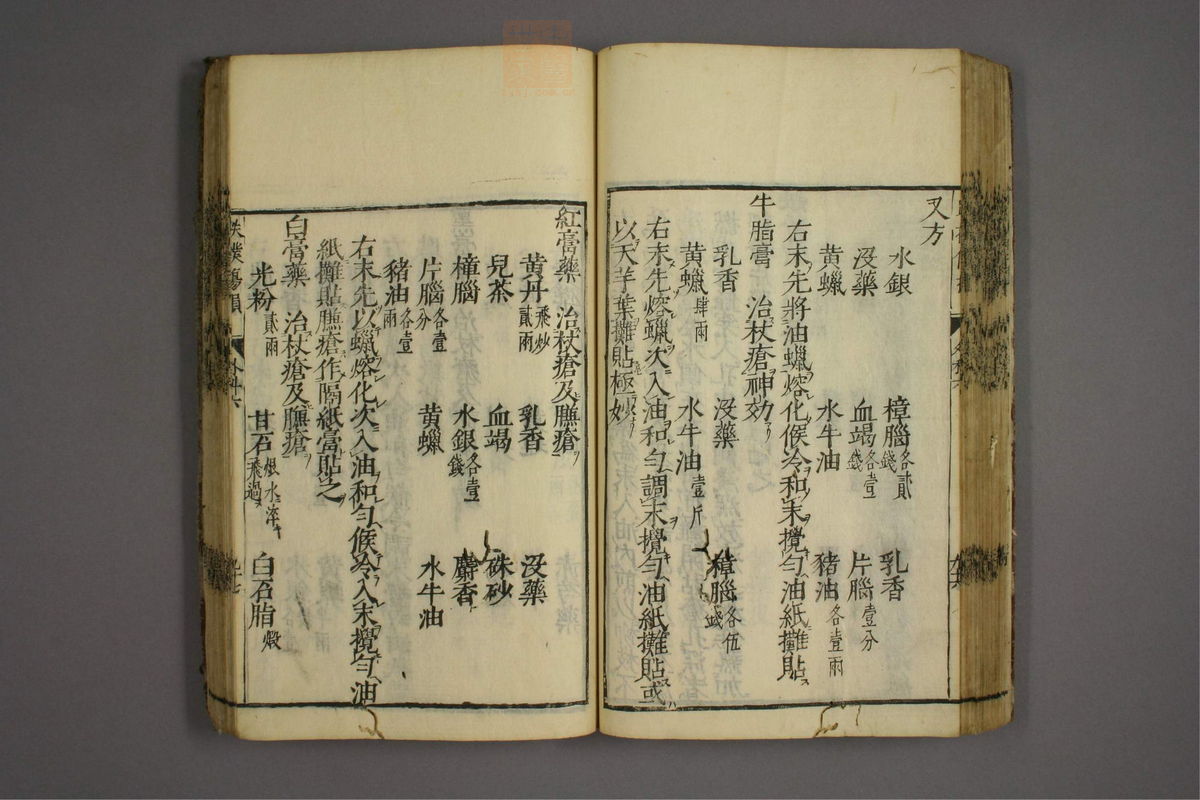 又方
水銀 樟腦各貳錢 乳香
沒藥 血竭各壹錢 片腦壹分
黃蠟 水牛油 猪油各壹兩
右末先將油蠟熔化候冷和末攪勻油紙攤貼
牛脂膏 治杖瘡神効
乳香 沒藥 樟腦各伍錢
黃蠟肆兩 水牛油壹斤
右末先熔蠟次入油和勻調末攪勻油紙攤貼或
以天芋葉攤貼極妙
紅膏藥 治杖瘡及臁瘡
黃丹飛炒貳兩 乳香 沒藥
兒茶 血竭 硃砂
樟腦 水銀各壹錢 麝香
片腦各壹分 黃蠟 水牛油
猪油各壹兩
右末先以蠟熔化次入油和勻候冷入末攪勻油
紙攤貼臁瘡作隔紙膏貼之
白膏藥 治杖瘡及臁瘡
光粉貳兩 甘石煅水淬飛過 白石脂煅
外科六